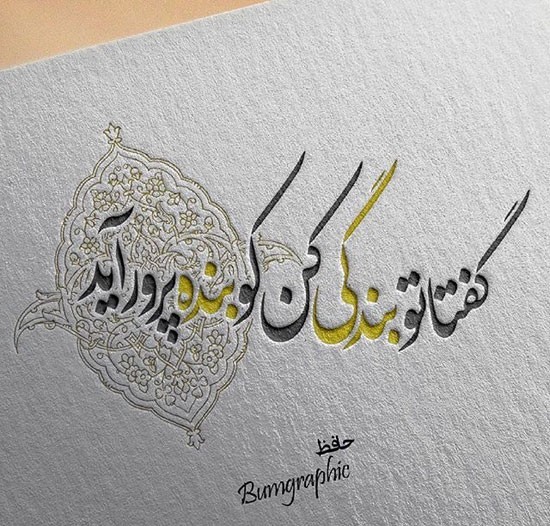 گفتا تو بندگی کن کو بنده پرور آید
حافظ
Bumgraphic